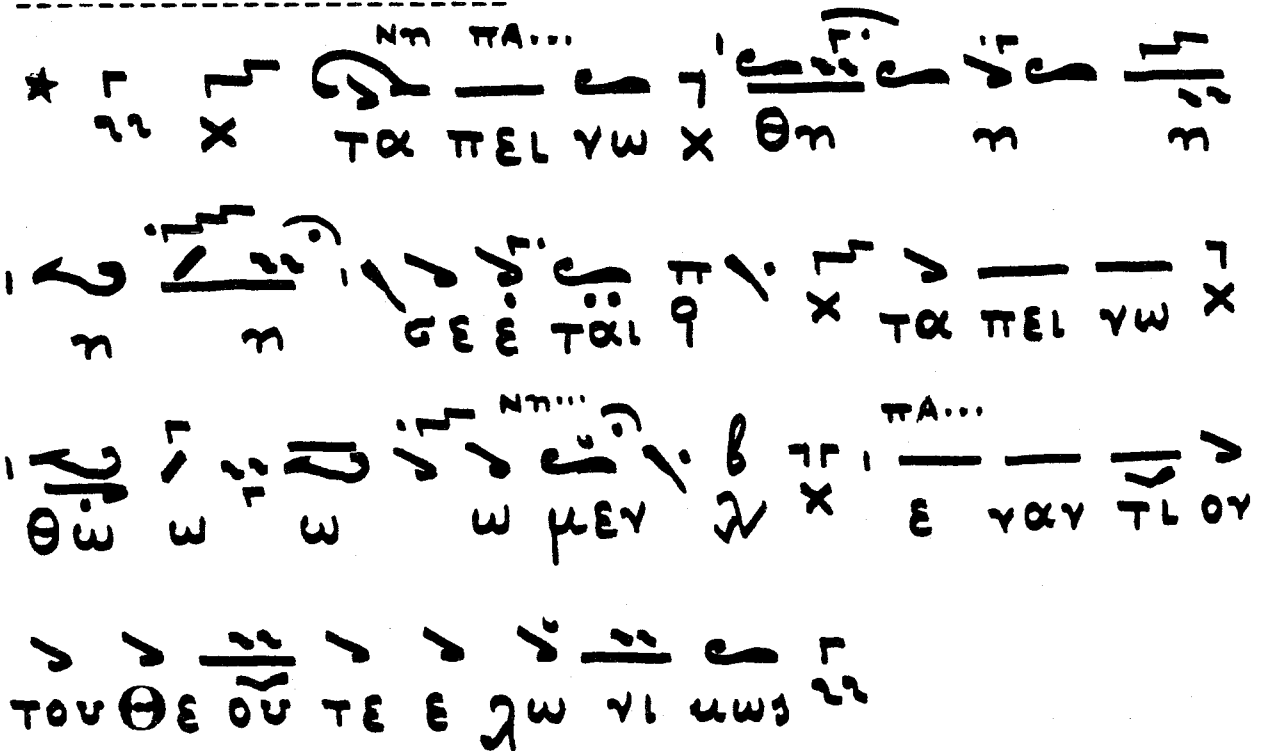 Νη πΑ...
τα πει νω θη η η
η η σε ε ται τα πει νω
Νη... πΑ...
θω ω ω ω μεν ε ναν τι ον
του Θε ου τε ε λω νι κως